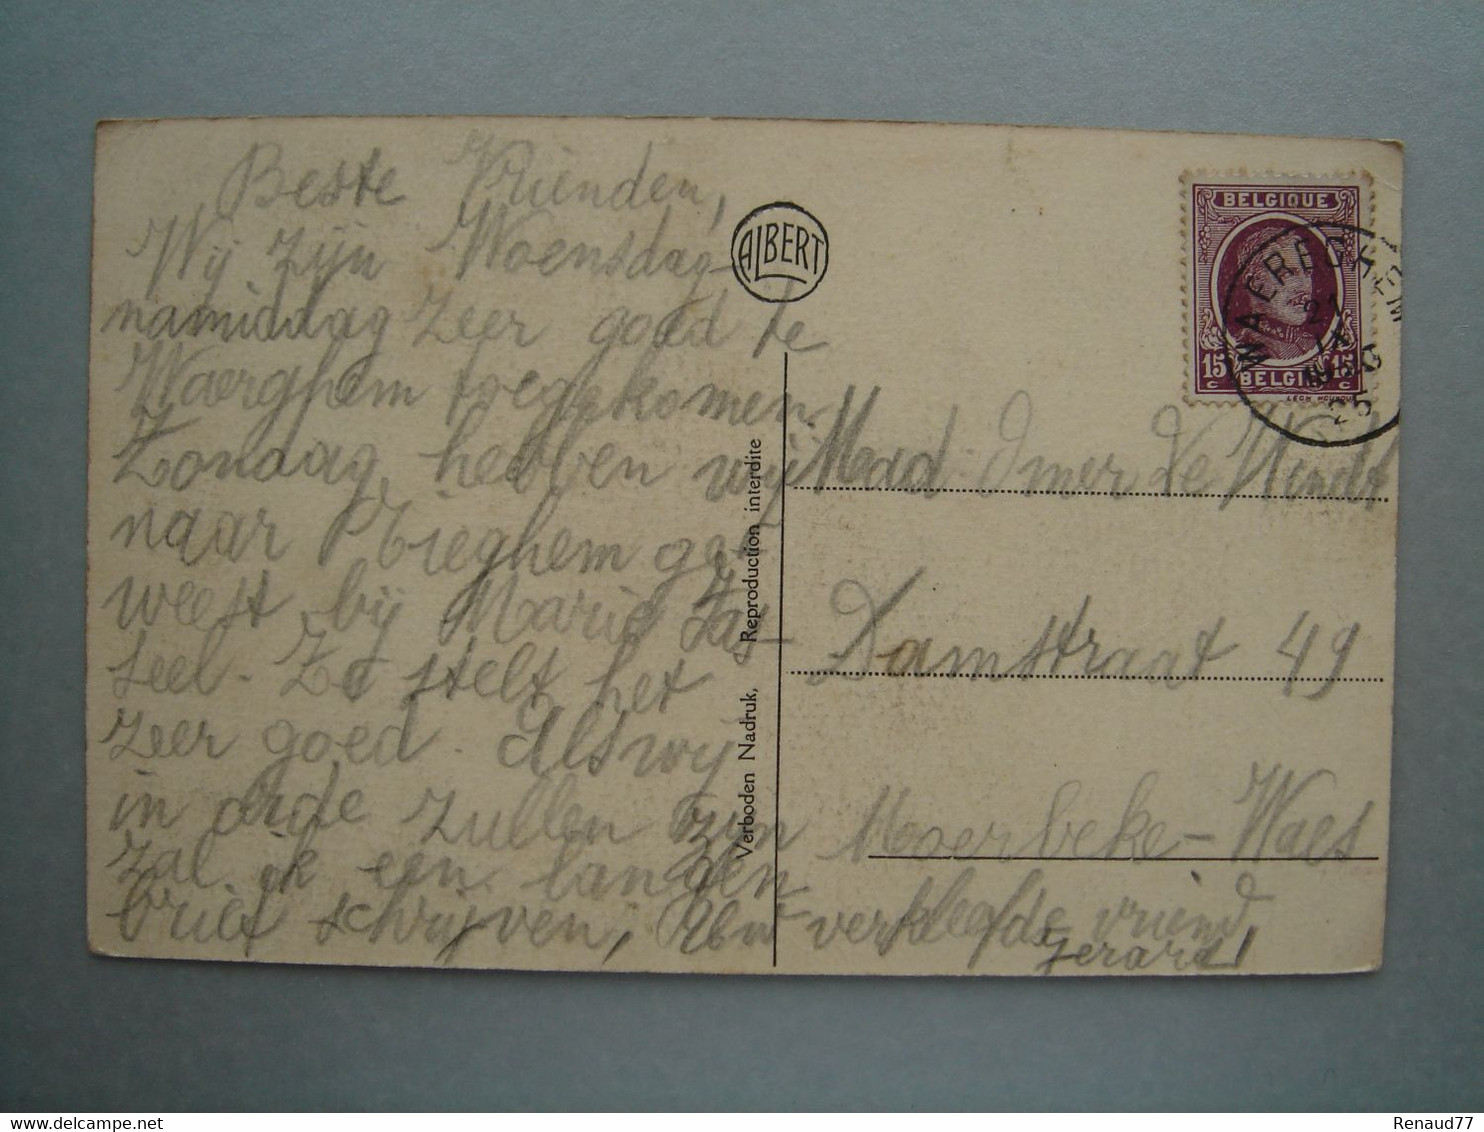 Beste Vrienden,
Wij zijn Woensdag-
namiddag zeer goed te
Waerghem toegekomen.
Zondag hebben wij
naar Rieghem ge-
weest bij Marie
seel. Zo stelt het
zeer goed. Als wij
in orde zullen zijn
zal ik een langen
brief schrijven, Uw verkleefde vriend
Gerard
ALBERT
Verboden Nadruk, Reproduction interdite
BELGIQUE
15 c 15 c
BELGIE
WAEREGHEM
21
IX
25
Mad. Omer De Windt
Damstraat 49
Moerbeke-Waes
delcampe.net
Renaud77